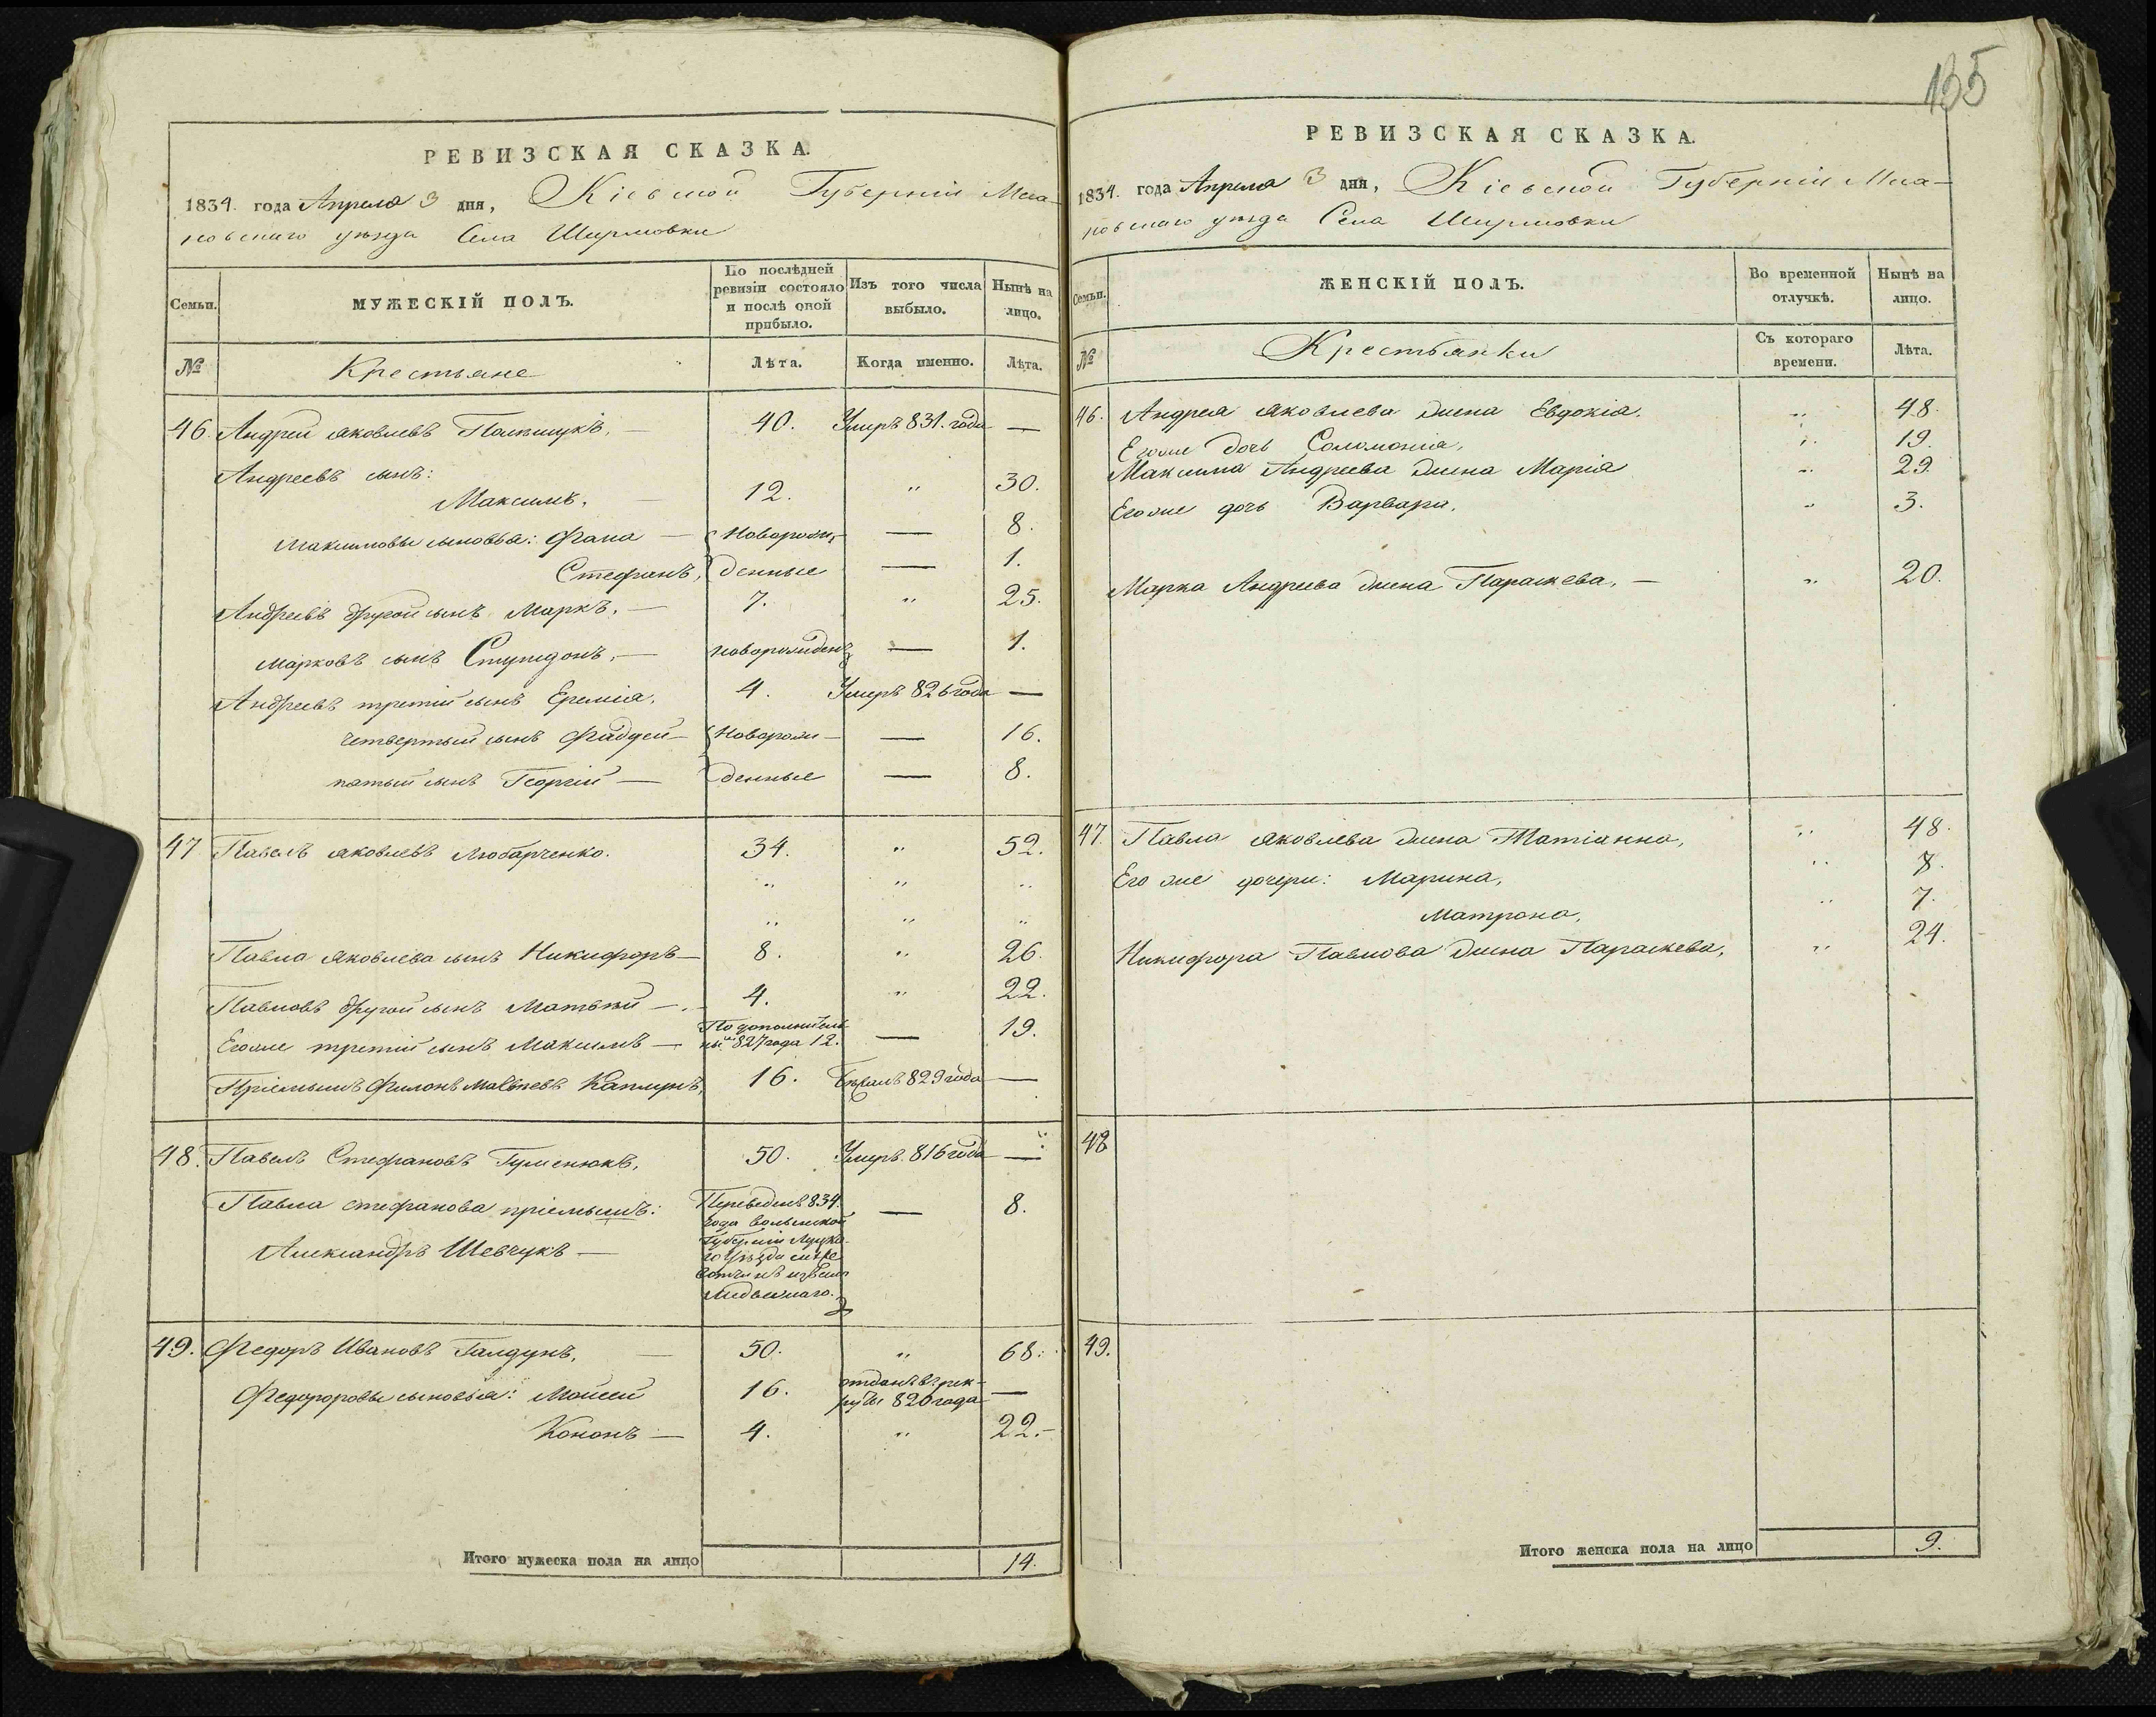 135
РЕВИЗСКАЯ СКАЗКА.
1834. года Апреля 3 дня, Кіевской Губерніи Маха-
новскаго уѣзда Села Ширмовки
Семьи.
МУЖЕСКІЙ ПОЛЪ.
По послѣдней ревизіи состояло и послѣ оной прибыло.
Изъ того числа выбыло.
Нынѣ на лицо.
№ Крестьяне Лѣта. Когда именно. Лѣта.
46. Андрей Яковлевъ Полищукъ, — 40. Умеръ 831. года —
Андреевъ сынъ:
Максимъ, — 12. „ 30.
Максимовы сыновья: Фама — Новорож- — 8.
Стефанъ, денные — 1.
Андреевъ другой сынъ Маркъ, — 7. „ 25.
Марковъ сынъ Спиридонъ, — новорожденъ — 1.
Андреевъ третій сынъ Еремія, 4. Умеръ 826 года —
четвертый сынъ Фаддей — Новорож- — 16.
пятый сынъ Георгій — денные — 8.
47 Павелъ Яковлевъ Любарченко. 34. „ 52.
„ „ „
„ „ „
Павла Яковлева сынъ Никифоръ — 8. „ 26.
Павловъ другой сынъ Матвѣй — 4. „ 22.
Егоже третій сынъ Максимъ — По дополнитель- ной 827 года 12. — 19.
Пріемышъ Филонъ Матвѣевъ Каплунъ, 16. Бѣжалъ 829 года —
48. Павелъ Стефановъ Гуменюкъ, 50. Умеръ. 816 года —
Павла Стефанова пріемышъ: Переведенъ 834. — 8.
года Волынской
Александръ Шевчукъ — Губерніи Луцка-
го уѣзда
49. Федоръ Ивановъ Галдунъ, — 50. „ 68.
Федороровы сыновья: Моисей 16. отданъ въ рек- руты 820 года —
Кононъ — 4. „ 22. -
Итого мужеска пола на лицо 14.
РЕВИЗСКАЯ СКАЗКА.
1834. года Апреля 3 дня, Кіевской Губерніи Маха-
новскаго уѣзда Села Ширмовки
Семьи.
ЖЕНСКІЙ ПОЛЪ.
Во временной отлучкѣ.
Нынѣ на лицо.
№ Крестьянки Съ котораго времени. Лѣта.
46. Андрея Яковлева жена Евдокія, „ 48.
Егоже дочь Соломонія, „ 19.
Максима Андреева жена Марія „ 29.
Егоже дочь Варвара, „ 3.
Марка Андреева жена Параскева, — „ 20.
47. Павла Яковлева жена Татіанна, „ 48.
Его же дочери: Марина, „ 8.
Матрона, „ 7.
Никифора Павлова жена Параскева, „ 24.
48
49.
Итого женска пола на лицо 9.